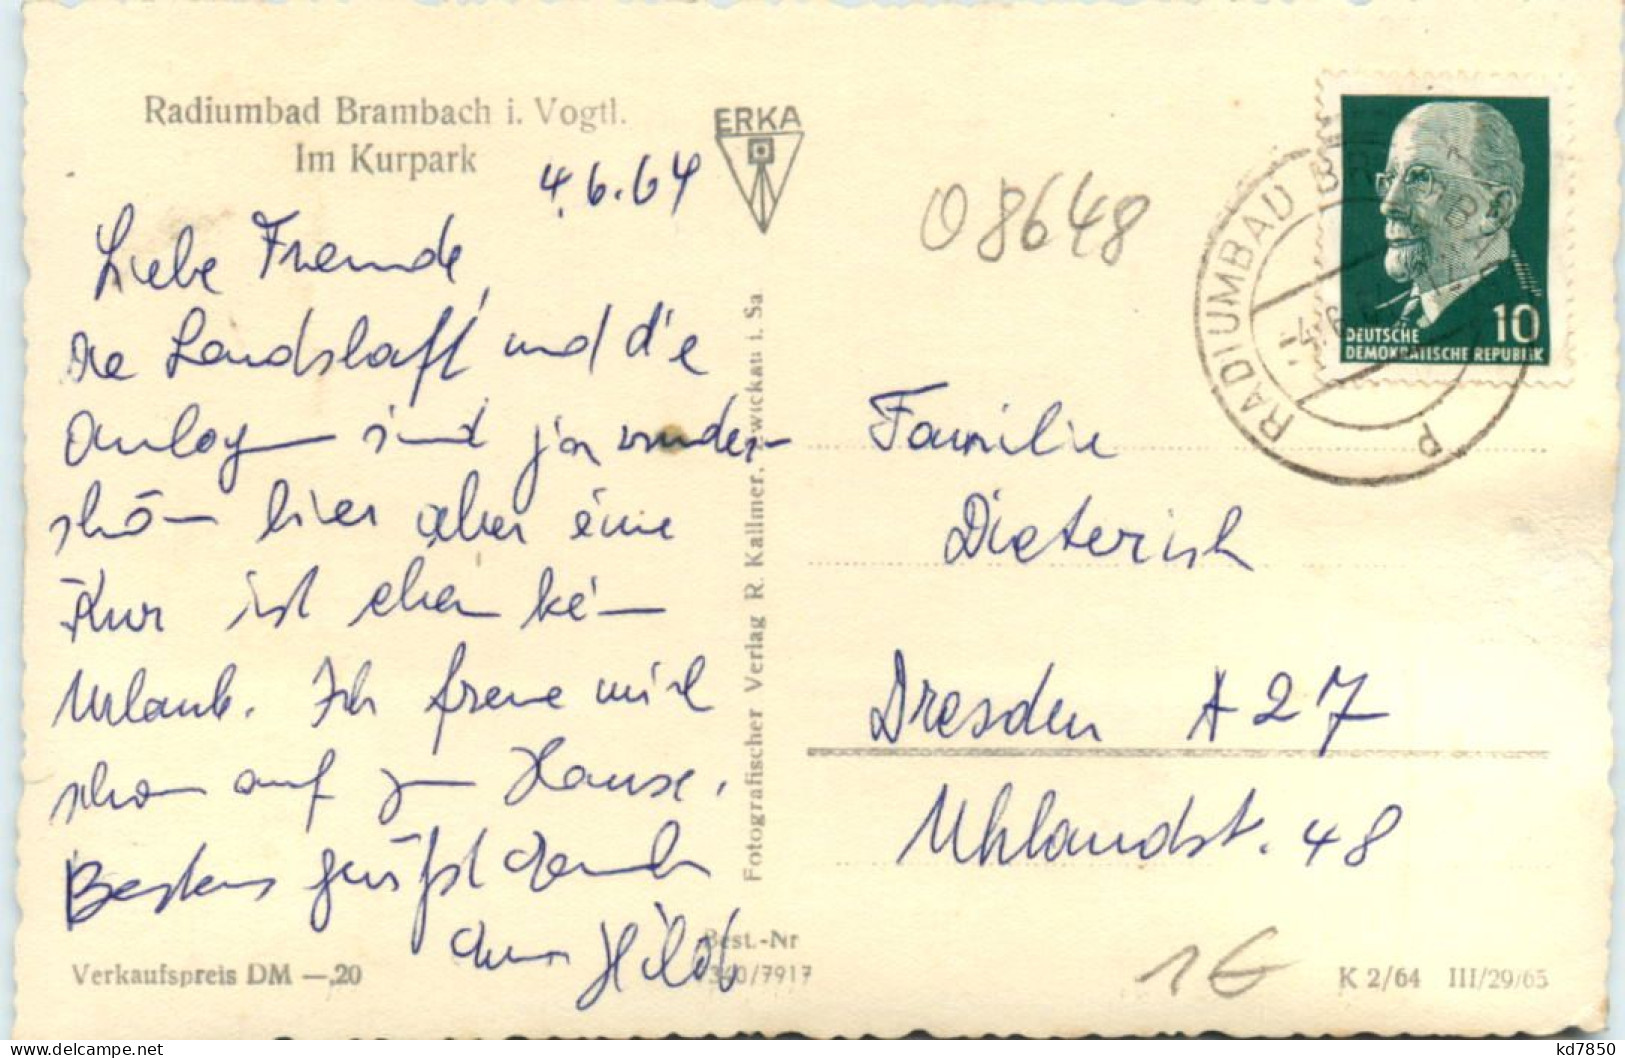 Radiumbad Brambach i. Vogtl.
Im Kurpark
ERKA
4.6.64
Liebe Freunde,
die Landschaft und die
Anlagen sind ja wunder-
schön hier aber eine
Kur ist eben kein
Urlaub. Ich freue mich
schon auf zu Hause.
Bestens grüßt
Hild
Verkaufspreis DM —,20
Fotografischer Verlag R. Kallmer, Zwickau i. Sa.
Best.-Nr
340/7917
08648
RADIUMBAD BRAMBACH
DEUTSCHE
DEMOKRATISCHE REPUBLIK
10
Familie
Dieterich
Dresden A 27
Uhlandst. 48
1€
K 2/64 III/29/65
kd7850